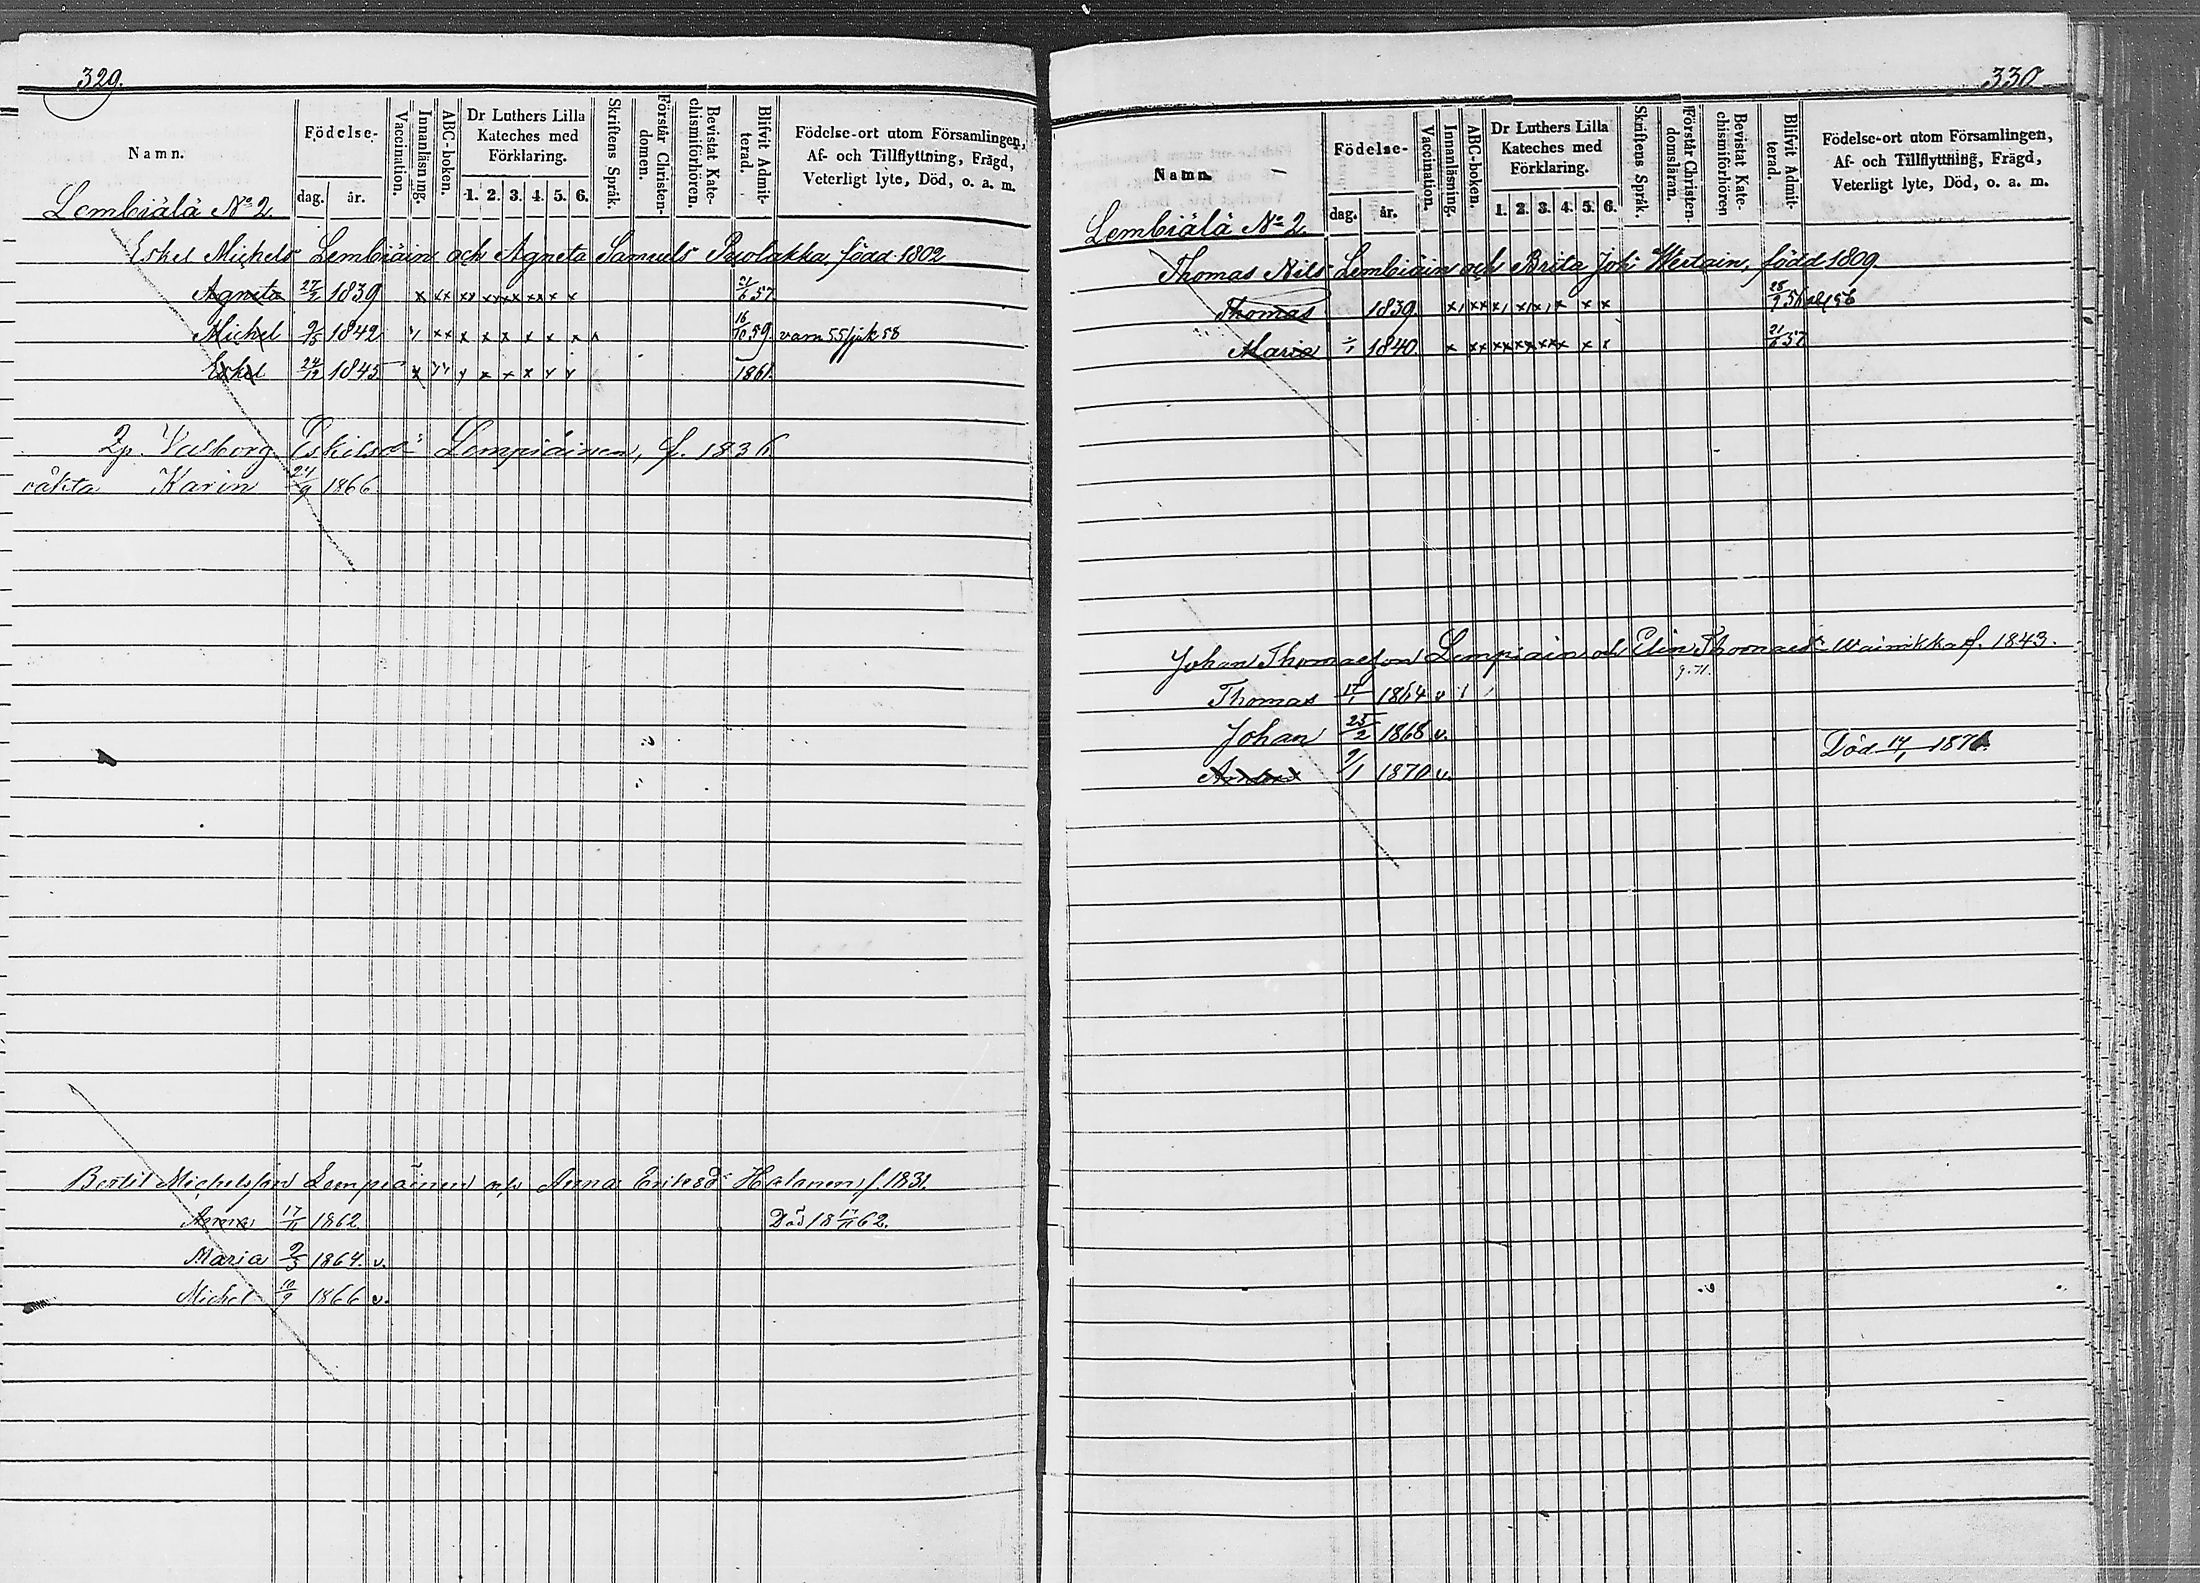 329.
Namn.
Födelse-
dag. år.
Vaccination.
Innanläsning.
ABC-boken.
Dr Luthers Lilla
Kateches med
Förklaring.
1. 2. 3. 4. 5. 6.
Skriftens Språk.
Förstår Christen-
domen.
Bevistat Kate-
chismiförhören.
Blifvit Admit-
terad.
Födelse-ort utom Församlingen,
Af- och Tillflyttning, Frägd,
Veterligt lyte, Död, o. a. m.
Lembiälä No 2.
Eskel Michels Lembiäin och Agneta Samuels Puolakka, född 1802
Agneta 27/2 1839 x xx xx xxxx xx x x 21/6 57.
Michel 9/5 1842 x xx x x x x x x x 16/10 59. varn 55 sjuk 58
Eskel 24/12 1845 x xx x x x x x x 1861.
Qp. Valborg Eskilsdr Lempiäinen, f. 1836
oäkta Karin 21/9 1866
Bertil Michelsson Lempiäinen och Anna Eriksdr Halanen, f. 1831.
Anna 17/11 1862 Död 18 17/11 62.
Maria 9/3 1864. v.
Michel 10/9 1866 v.
330
Namn.
Födelse-
dag. år.
Vaccination.
Innanläsning.
ABC-boken.
Dr Luthers Lilla
Kateches med
Förklaring.
1. 2. 3. 4. 5. 6.
Skriftens Språk.
Förstår Christen-
domsläran.
Bevistat Kate-
chismiförhören
Blifvit Admit-
terad.
Födelse-ort utom Församlingen,
Af- och Tillflyttning, Frägd,
Veterligt lyte, Död, o. a. m.
Lembiälä No 2.
Thomas Nils Lembiäin och Brita Joh: Wertain, född 1809
Thomas 1839. x xx x x x x x x 28/9 56
Maria 1840. x xx xx xx xx x x x 21/6 57
Johan Thomasson Lempiäin och Elin Thomasdr Wainikka f. 1843.
g. 71.
Thomas 17/1 1864 v
Johan 25/2 1868 v.
9/1 1870 v. Död 17/1 1871.